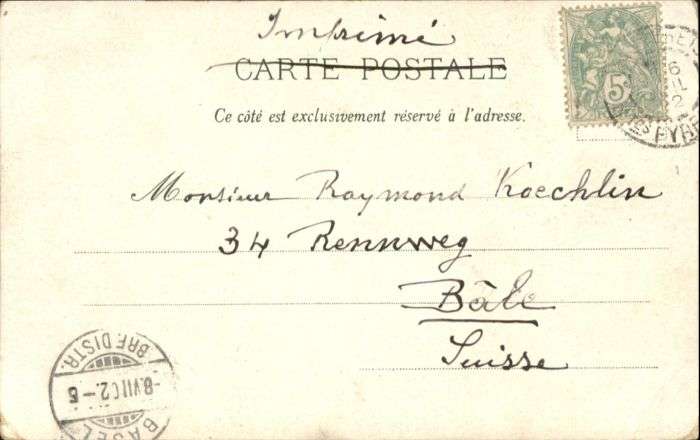 Imprimé
CARTE POSTALE
Ce côté est exclusivement réservé à l'adresse.
5
Monsieur Raymond Koechlin
34 Rennweg
Bâle
Suisse
BRF. DISTR.
-8.VII.02.-5
BASEL